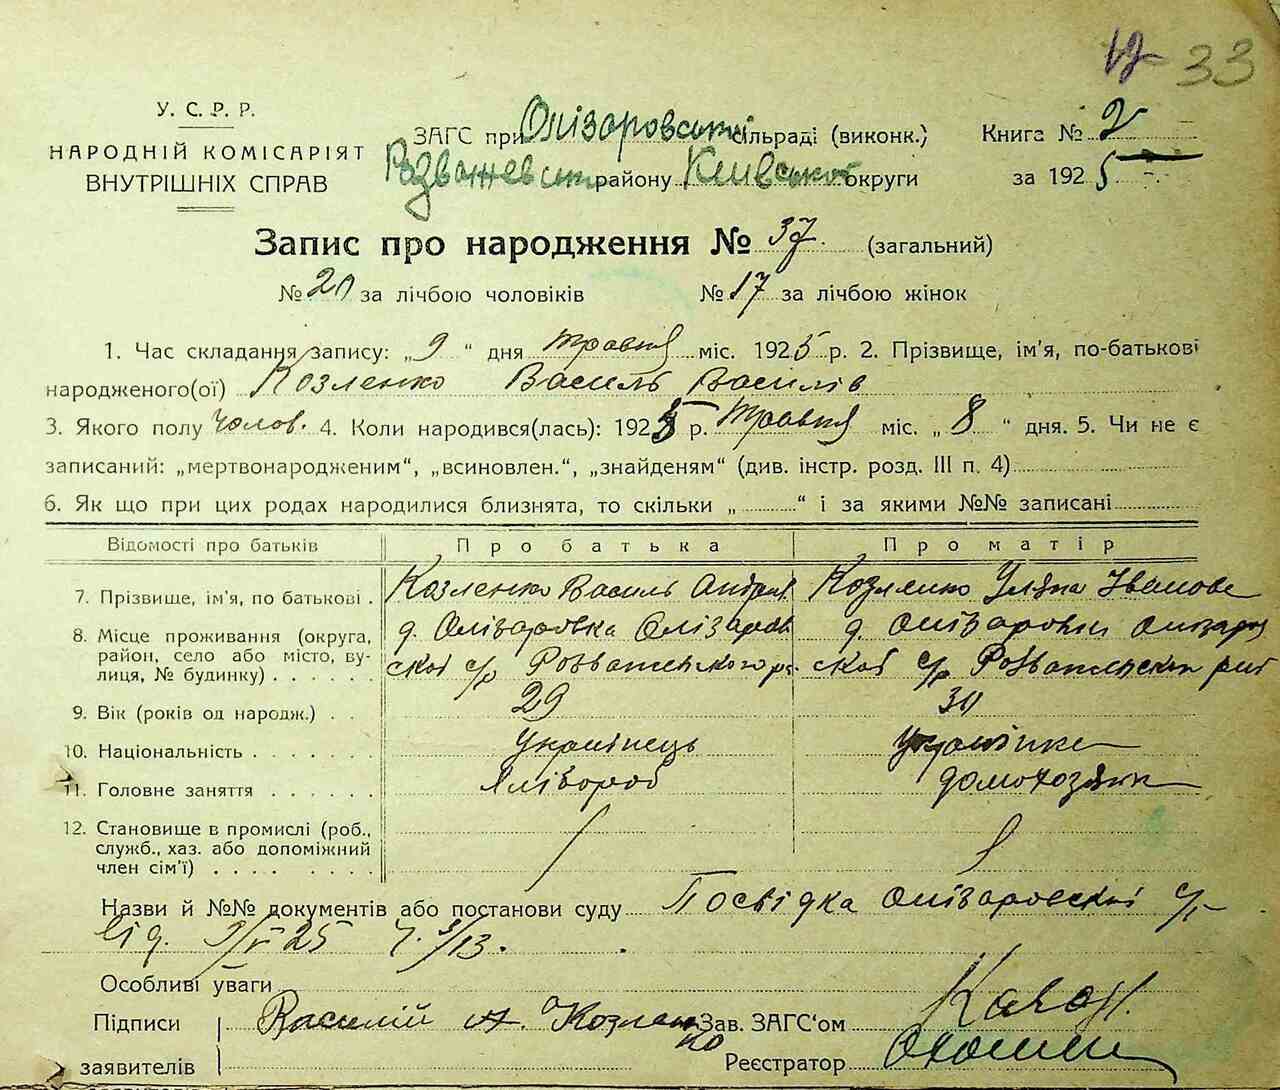 12 33
У. С. Р. Р.
НАРОДНІЙ КОМІСАРІЯТ
ВНУТРІШНІХ СПРАВ
ЗАГС при Олізаровській сільраді (виконк.) Книга № 2
Розважевськ району Київської округи за 1925
Запис про народження № 37. (загальний)
№ 20 за лічбою чоловіків № 17 за лічбою жінок
1. Час складання запису: „ 9 “ дня травня міс. 1925 р. 2. Прізвище, ім'я, по-батькові
народженого(ої) Козленко Василь Василів
3. Якого полу чолов. 4. Коли народився(лась): 1925 р. травня міс. „ 8 “ дня. 5. Чи не є
записаний: „мертвонародженим“, „всиновлен.“, „знайденям“ (див. інстр. розд. III п. 4)
6. Як що при цих родах народилися близнята, то скільки „ “ і за якими №№ записані
Відомості про батьків Про батька Про матір
7. Прізвище, ім'я, по батькові . Козленко Василь Андрів Козленко Уляна Іванова
8. Місце проживання (округа, район, село або місто, вулиця, № будинку) . . . . . . д. Олізаровка Олізаров д. Олізаровки Олізаров
ської с/р Розважевського р. ської с/р
9. Вік (років од народж.) . . 29 30
10. Національність . . . . Українець Українка
11. Головне заняття . . . . . . Хлівороб домохозяйка
12. Становище в промислі (роб., служб., хаз. або допоміжний член сім'ї) . . . . . . . .
Назви й №№ документів або постанови суду Посвідка Олізаровської с/р
від. 9/V 25 ч. 3/13.
Особливі уваги
Підписи Василій А. Козленко Зав. ЗАГС'ом
заявителів Реєстратор